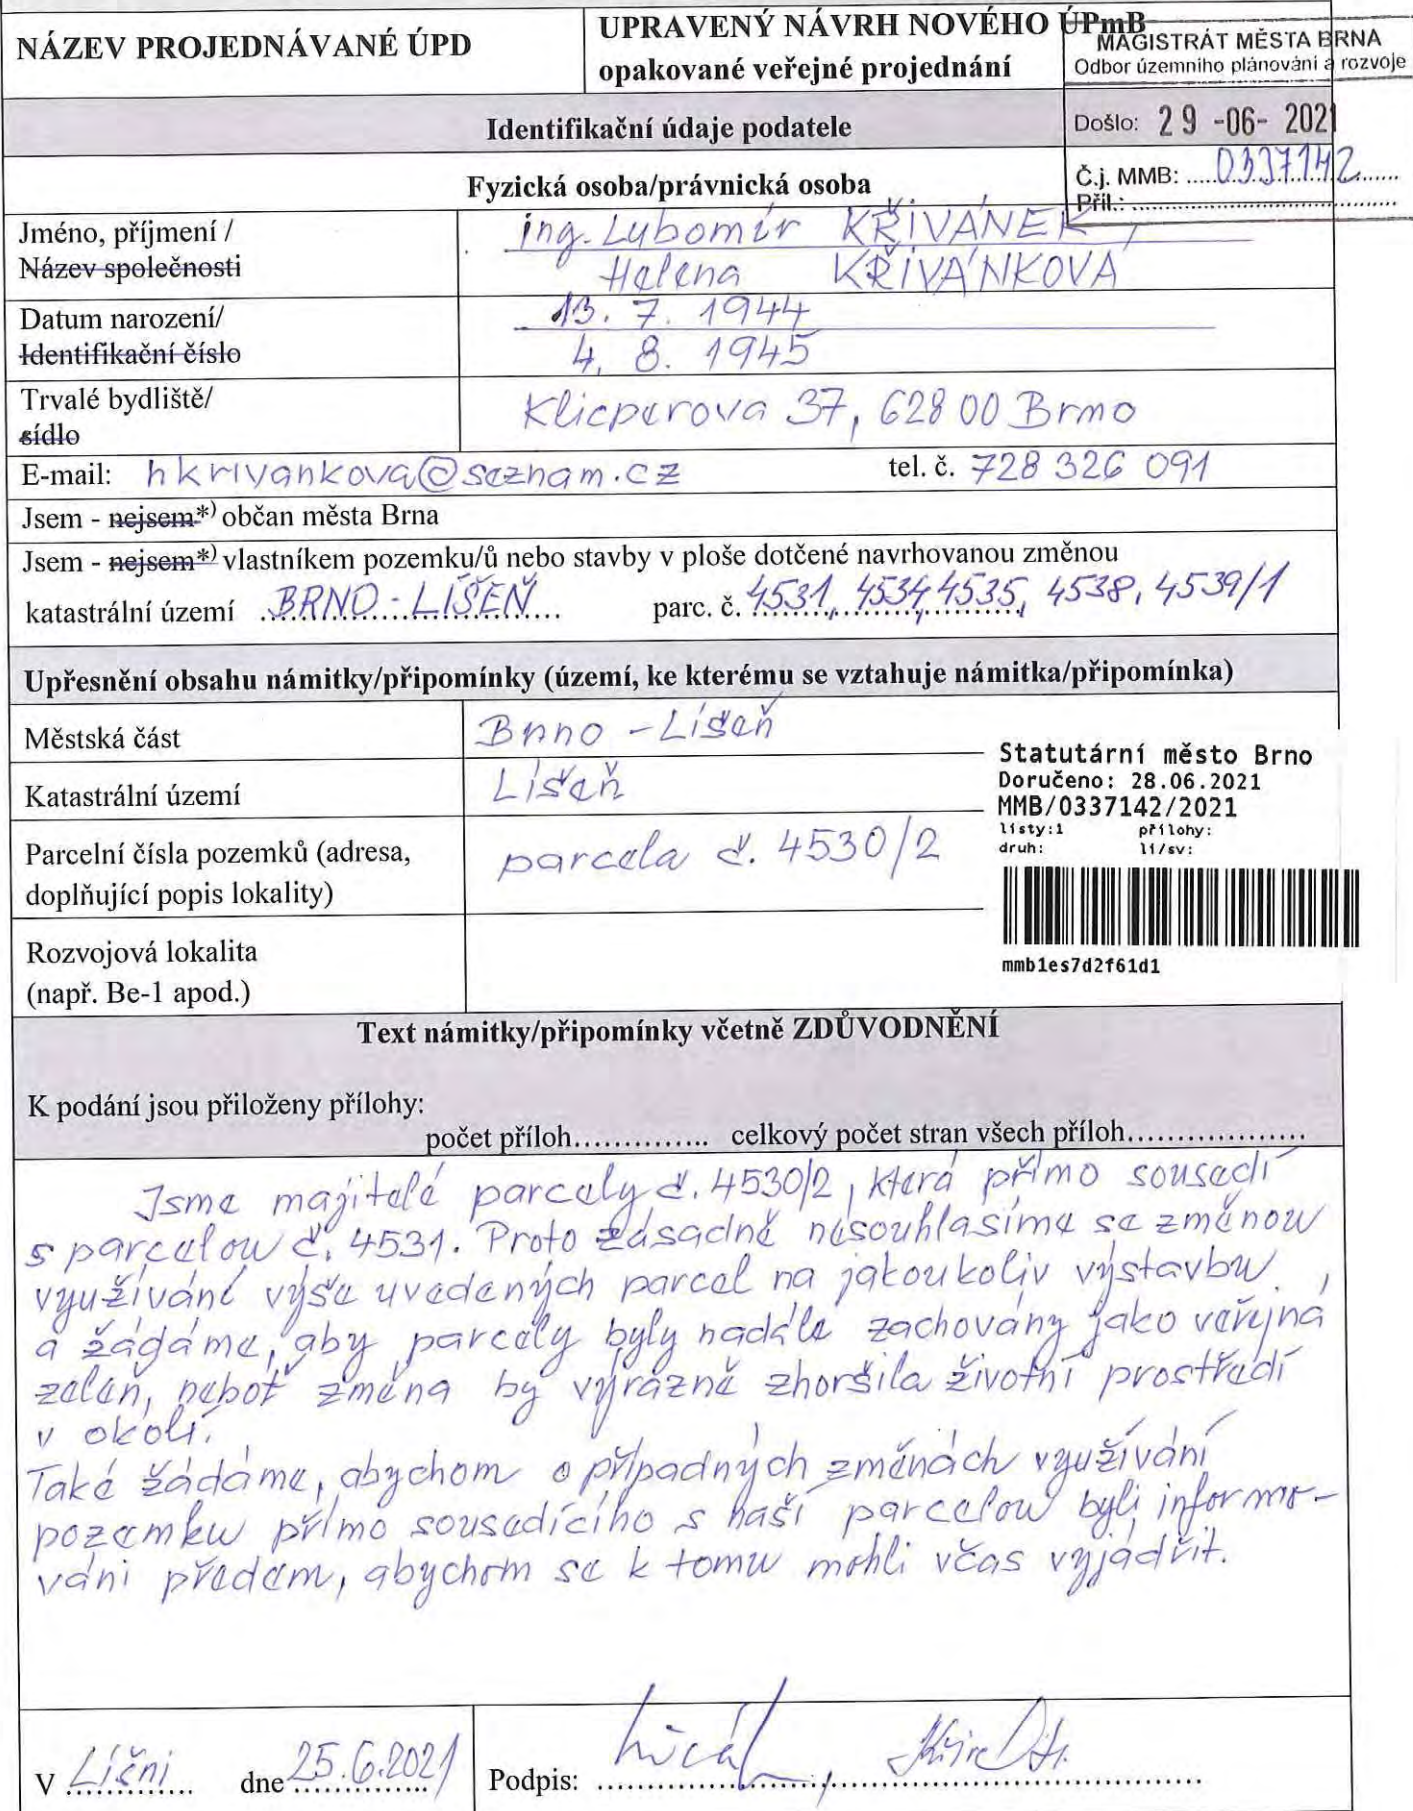 NÁZEV PROJEDNÁVANÉ ÚPD
UPRAVENÝ NÁVRH NOVÉHO ÚPmB
opakované veřejné projednání
MAGISTRÁT MĚSTA BRNA
Odbor územního plánování a rozvoje
Došlo: 29 -06- 2021
Č.j. MMB: .....0337142.......
Příl.: ......................................
Identifikační údaje podatele
Fyzická osoba/právnická osoba
Jméno, příjmení /
Název společnosti
ing. Lubomír KŘIVÁNEK,
Helena KŘIVÁNKOVÁ
Datum narození/
Identifikační číslo
13. 7. 1944
4. 8. 1945
Trvalé bydliště/
sídlo
Klicperova 37, 628 00 Brno
E-mail: hkrivankova@seznam.cz tel. č. 728 326 091
Jsem - nejsem*) občan města Brna
Jsem - nejsem*) vlastníkem pozemku/ů nebo stavby v ploše dotčené navrhovanou změnou
katastrální území BRNO - LÍŠEŇ parc. č. 4531, 4534, 4535, 4538, 4539/1
Upřesnění obsahu námitky/připomínky (území, ke kterému se vztahuje námitka/připomínka)
Městská část
Brno - Líšeň
Katastrální území
Líšeň
Parcelní čísla pozemků (adresa,
doplňující popis lokality)
parcela č. 4530/2
Statutární město Brno
Doručeno: 28.06.2021
MMB/0337142/2021
listy:1 přílohy:
druh: li/sv:
mmb1es7d2f61d1
Rozvojová lokalita
(např. Be-1 apod.)
Text námitky/připomínky včetně ZDŮVODNĚNÍ
K podání jsou přiloženy přílohy:
počet příloh.............. celkový počet stran všech příloh..................
Jsme majitelé parcely č. 4530/2, která přímo sousedí
s parcelou č. 4531. Proto zásadně nesouhlasíme se změnou
využívání výše uvedených parcel na jakoukoliv výstavbu,
a žádáme, aby parcely byly nadále zachovány jako veřejná
zeleň, neboť změna by výrazně zhoršila životní prostředí
v okolí.
Také žádáme, abychom o případných změnách využívání
pozemku přímo sousedícího s naší parcelou byli informo-
váni předem, abychom se k tomu mohli včas vyjádřit.
V Líšni dne 25.6.2021
Podpis: